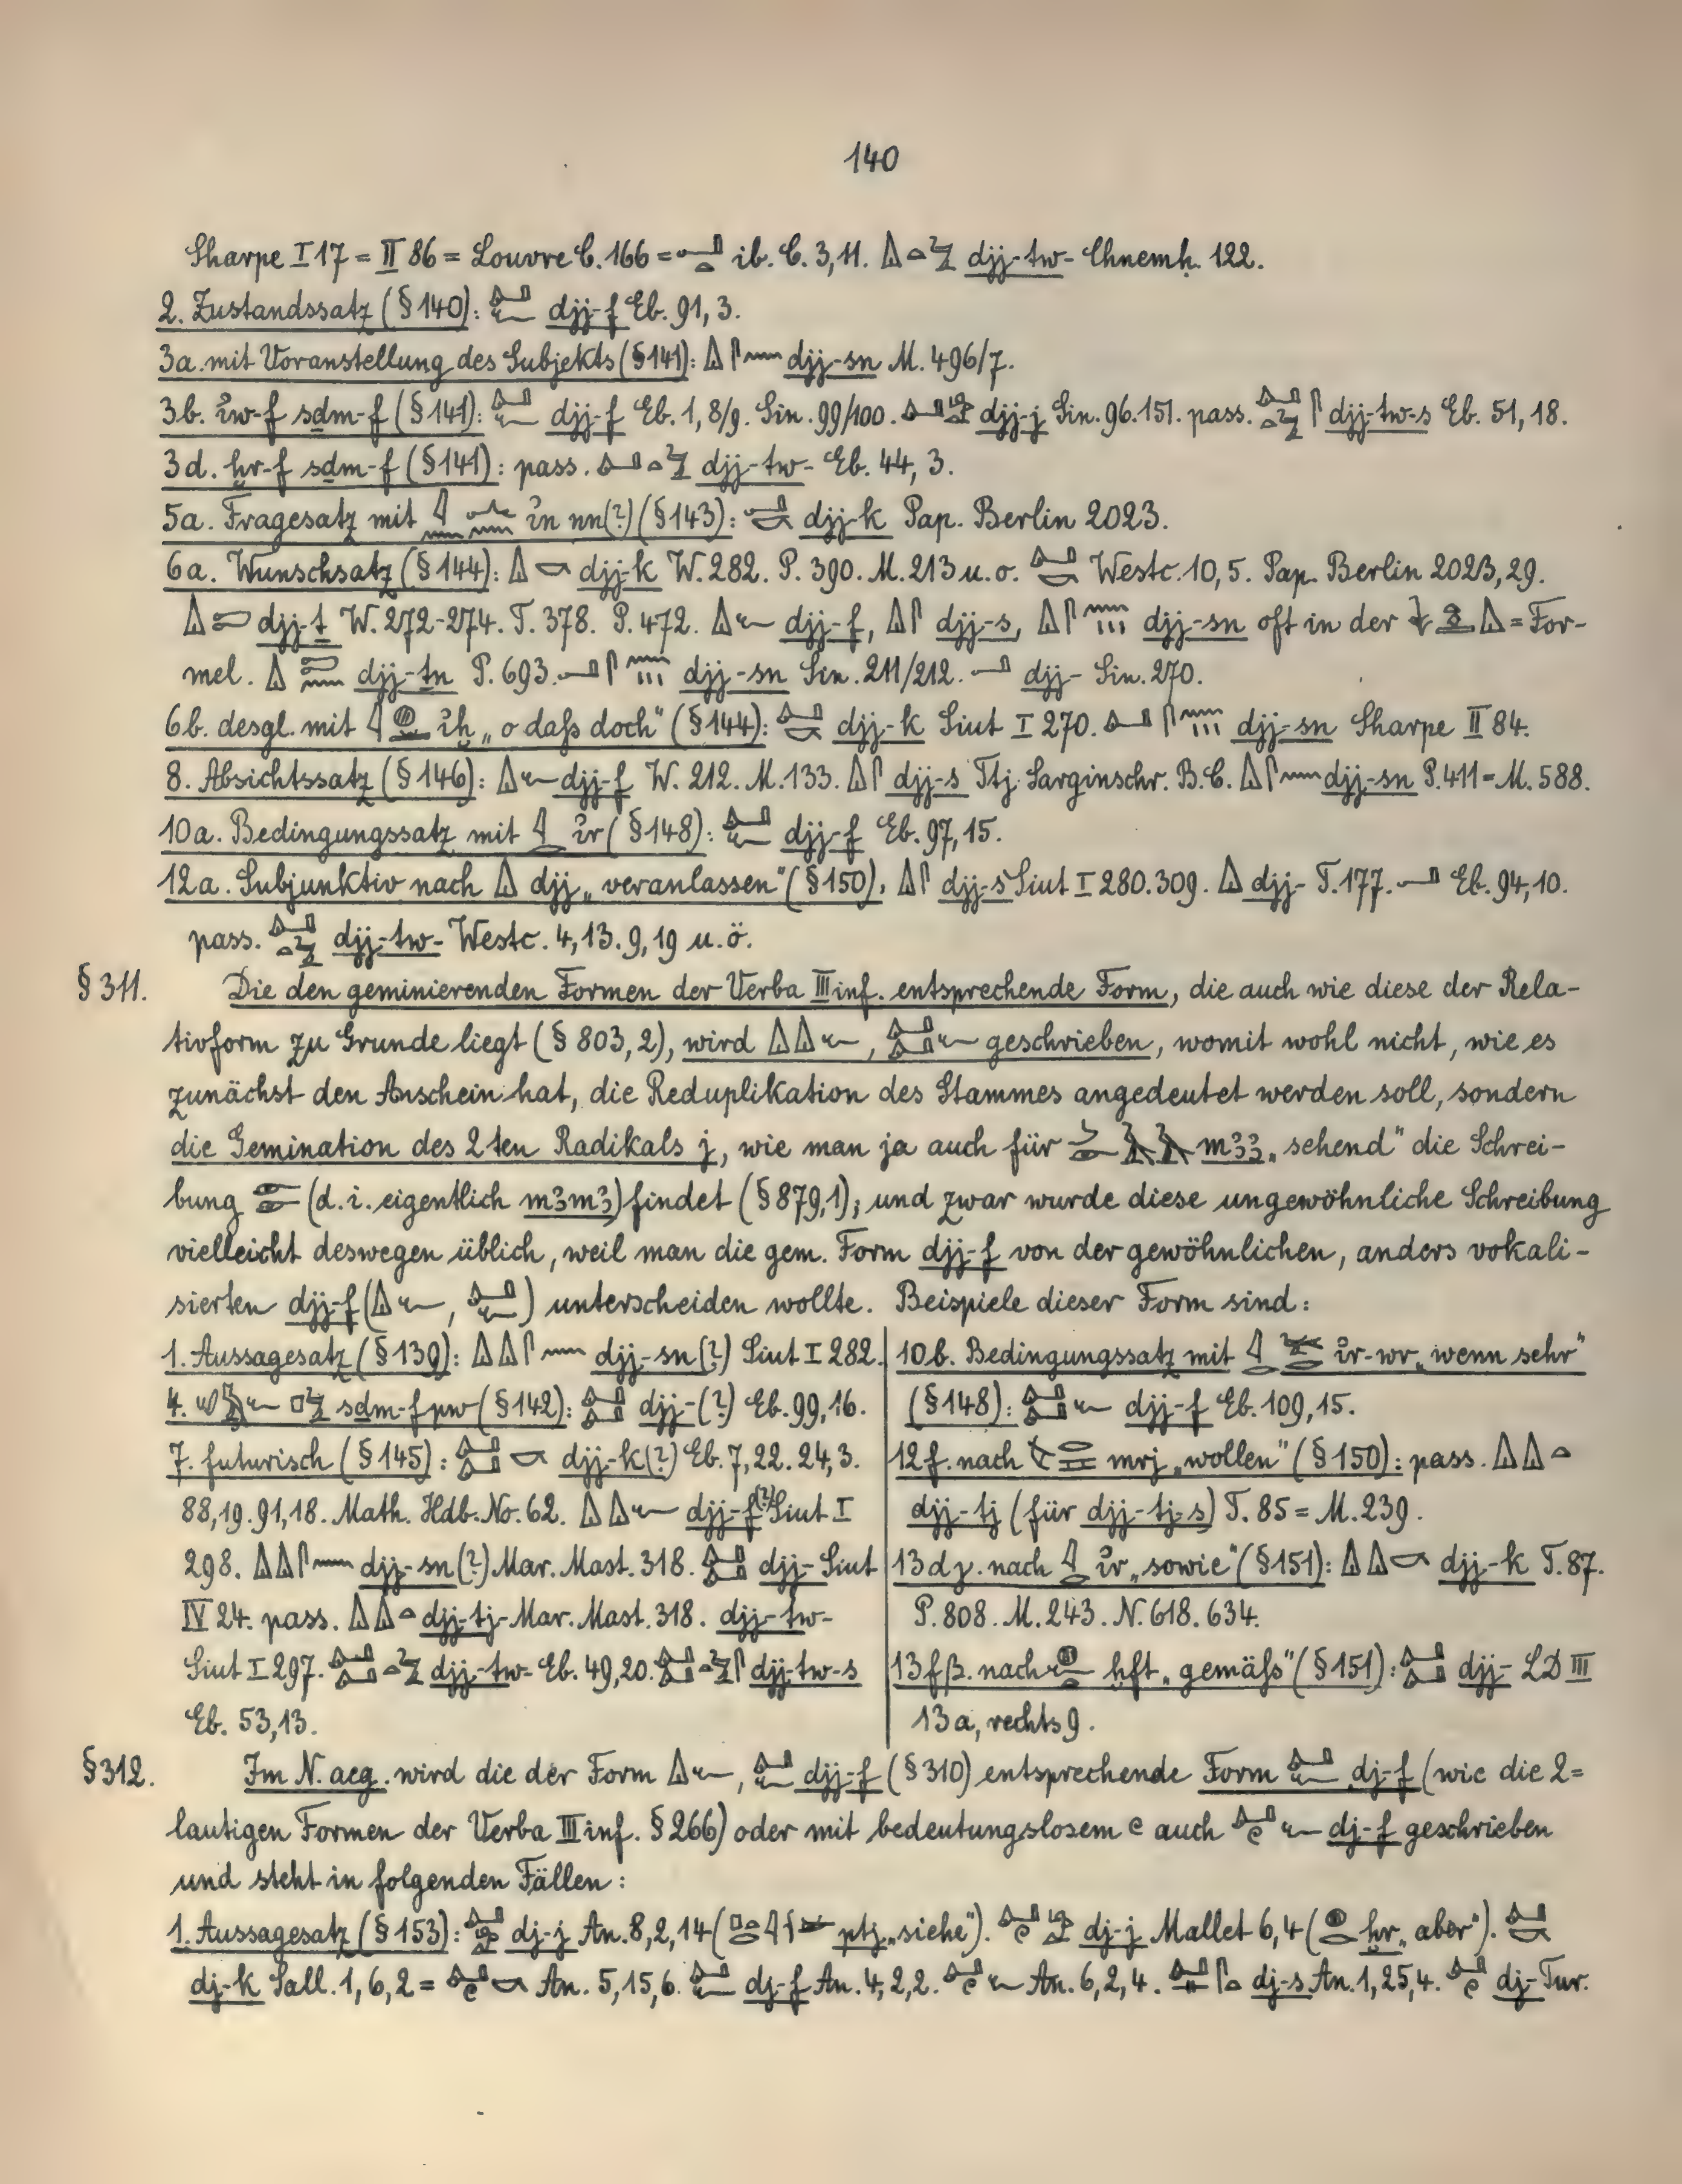 140
Sharpe I 17 = II 86 = Louvre C. 166 = ib. C. 3, 11. djj-tw- Chnemḥ. 122.
2. Zustandssatz (§ 140): djj-f Eb. 91, 3.
3a. mit Voranstellung des Subjekts (§ 141): djj-sn M. 496/7.
3b. ỉw-f sḏm-f (§ 141): djj-f Eb. 1, 8/9. Sin. 99/100. djj-j Sin. 96. 151. pass. djj-tw-s Eb. 51, 18.
3d. ḫr-f sḏm-f (§ 141): pass. djj-tw- Eb. 44, 3.
5a. Fragesatz mit ỉn nn(?) (§ 143): djj-k Pap. Berlin 2023.
6a. Wunschsatz (§ 144): djj-k W. 282. P. 390. M. 213 u. o. Westc. 10, 5. Pap. Berlin 2023, 29.
djj-ṯ W. 272-274. T. 378. P. 472. djj-f, djj-s, djj-sn oft in der = For-
mel. djj-ṯn P. 693. djj-sn Sin. 211/212. djj- Sin. 270.
6b. desgl. mit ỉḫ „o daſs doch" (§ 144): djj-k Siut I 270. djj-sn Sharpe II 84.
8. Absichtssatz (§ 146): djj-f W. 212. M. 133. djj-s Ttj Sarginschr. B. C. djj-sn P. 411 = M. 588.
10a. Bedingungssatz mit ỉr (§ 148): djj-f Eb. 97, 15.
12a. Subjunktiv nach djj „veranlassen" (§ 150): djj-s Siut I 280. 309. djj- T. 177. Eb. 94, 10.
pass. djj-tw- Westc. 4, 13. 9, 19 u. ö.
§ 311. Die den geminierenden Formen der Verba III inf. entsprechende Form, die auch wie diese der Rela-
tivform zu Grunde liegt (§ 803, 2), wird , geschrieben, womit wohl nicht, wie es
zunächst den Anschein hat, die Reduplikation des Stammes angedeutet werden soll, sondern
die Gemination des 2ten Radikals j, wie man ja auch für mꜣꜣ „sehend" die Schrei-
bung (d. i. eigentlich mꜣmꜣ) findet (§ 879, 1); und zwar wurde diese ungewöhnliche Schreibung
vielleicht deswegen üblich, weil man die gem. Form djj-f von der gewöhnlichen, anders vokali-
sierten djj-f ( , ) unterscheiden wollte. Beispiele dieser Form sind:
1. Aussagesatz (§ 139): djj-sn(?) Siut I 282.
4. sḏm-f pw (§ 142): djj-(?) Eb. 99, 16.
7. futurisch (§ 145): djj-k(?) Eb. 7, 22. 24, 3.
88, 19. 91, 18. Math. Hdb. No. 62. djj-f(?) Siut I
298. djj-sn(?) Mar. Mast. 318. djj- Siut
IV 24. pass. djj-tj- Mar. Mast. 318. djj-tw-
Siut I 297. djj-tw- Eb. 49, 20. djj-tw-s
Eb. 53, 13.
10b. Bedingungssatz mit ỉr-wr „wenn sehr"
(§ 148): djj-f Eb. 109, 15.
12f. nach mrj „wollen" (§ 150): pass.
djj-tj (für djj-tj-s) T. 85 = M. 239.
13dγ. nach ỉr „sowie" (§ 151): djj-k T. 87.
P. 808. M. 243. N. 618. 634.
13fβ. nach ḫft „gemäſs" (§ 151): djj- LD III
13a, rechts 9.
§ 312. Im N. aeg. wird die der Form , djj-f (§ 310) entsprechende Form dj-f (wie die 2=
lautigen Formen der Verba III inf. § 266) oder mit bedeutungslosem e auch dj-f geschrieben
und steht in folgenden Fällen:
1. Aussagesatz (§ 153): dj-j An. 8, 2, 14 ( ptj „siehe"). dj-j Mallet 6, 4 ( ḫr „aber").
dj-k Sall. 1, 6, 2 = An. 5, 15, 6. dj-f An. 4, 2, 2. An. 6, 2, 4. dj-s An. 1, 25, 4. dj- Tur.